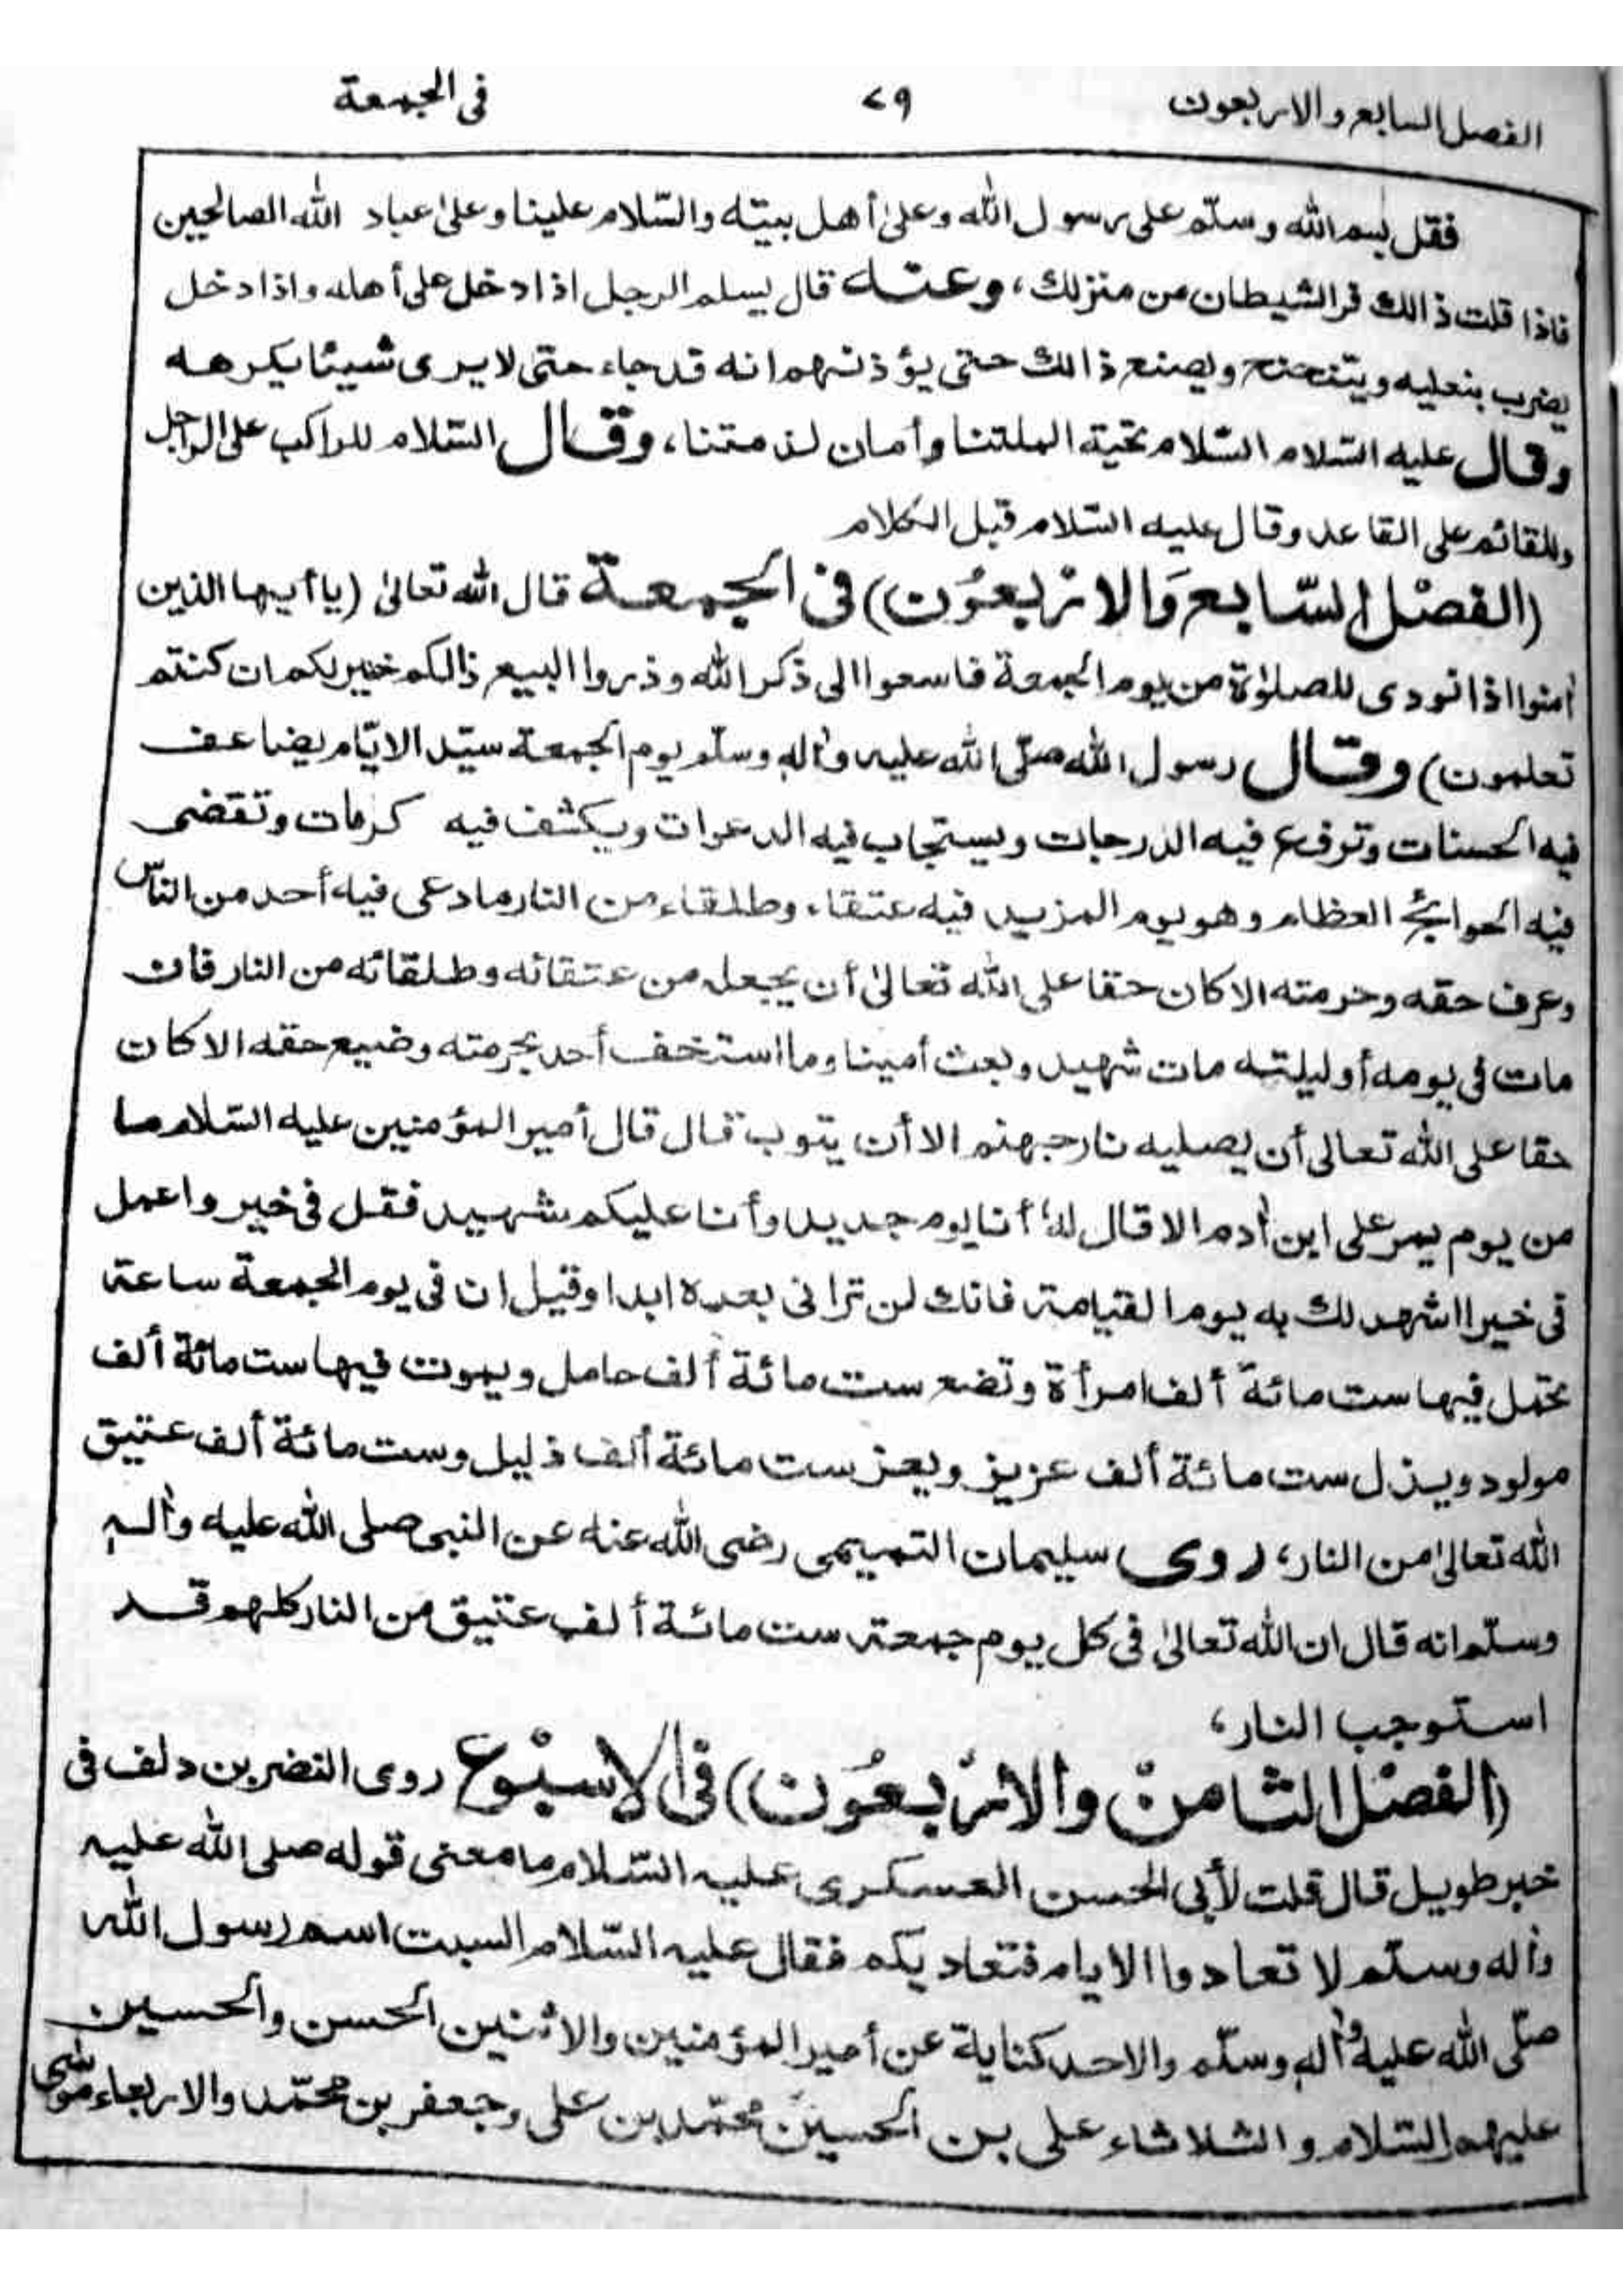 الفصل السابع والاربعون ٧٩ فى الجمعة
فقل بسم الله وسلّم على رسول الله وعلى أهل بيته والسّلام علينا وعلى عباد الله الصالحين
فاذا قلت ذالك فر الشيطان من منزلك، وعنه قال يسلم الرجل اذا دخل على أهله واذا دخل
يضرب بنعليه ويتنحنح ويصنع ذالك حتى يؤذنهم انه قد جاء حتى لا يرى شيئا يكرهه
وقال عليه السّلام السّلام تحية الملتنا وأمان لذمتنا، وقال السّلام للراكب على الراجل
وللقائم على القاعد وقال عليه السّلام قبل الكلام
(الفصْل السّابع وَالاربعُون) فى الجمعة قال الله تعالىٰ (يا أيها الذين
اٰمنوا اذا نودى للصلوٰة من يوم الجمعة فاسعوا الى ذكر الله وذروا البيع ذالكم خير لكم ان كنتم
تعلمون) وقال رسول الله صلّى الله عليه واٰله وسلّم يوم الجمعة سيّد الايّام يضاعف
فيه الحسنات وترفع فيه الدرجات ويستجاب فيه الدعوات ويكشف فيه كرمات وتقضى
فيه الحوائج العظام وهو يوم المزيد فيه عتقاء وطلقاء من النار ما دعى فيه أحد من الناس
وعرف حقه وحرمته الا كان حقا على الله تعالىٰ أن يجعله من عتقائه وطلقائه من النار فان
مات فى يومه أو ليلته مات شهيد وبعث أمينا وما استخف أحد بحرمته وضيع حقه الا كان
حقا على الله تعالى أن يصليه نار جهنم الا أن يتوب قال قال أمير المؤمنين عليه السّلام ما
من يوم يمر على ابن اٰدم الا قال له أنا يوم جديد وأنا عليكم شهيد فقل فى خير واعمل
فى خير ااشهد لك به يوم القيامة فانك لن ترانى بعده ابدا وقيل ان فى يوم الجمعة ساعة
تحمل فيها ست مائة ألف امرأة وتضع ست مائة ألف حامل ويموت فيها ست مائة ألف
مولود ويذل ست مائة ألف عزيز ويعز ست مائة ألف ذليل وست مائة ألف عتيق
الله تعالىٰ من النار، روى سليمان التميمى رضى الله عنه عن النبى صلى الله عليه واٰله
وسلّم انه قال ان الله تعالىٰ فى كل يوم جمعة ست مائة ألف عتيق من النار كلهم قد
استوجب النار،
(الفصْل الثامنْ والاربعُون) فى الاسبْوع روى النضر بن دلف فى
خبر طويل قال قلت لأبى الحسن العسكرى عليه السّلام ما معنى قوله صلى الله عليه
واٰله وسلّم لا تعادوا الايام فتعاديكم فقال عليه السّلام السبت اسم رسول الله
صلّى الله عليه واٰله وسلّم والاحد كناية عن أمير المؤمنين والاثنين الحسن والحسين
عليهم السّلام والثلاثاء على بن الحسين محمّد بن على وجعفر بن محمّد والاربعاء موسى